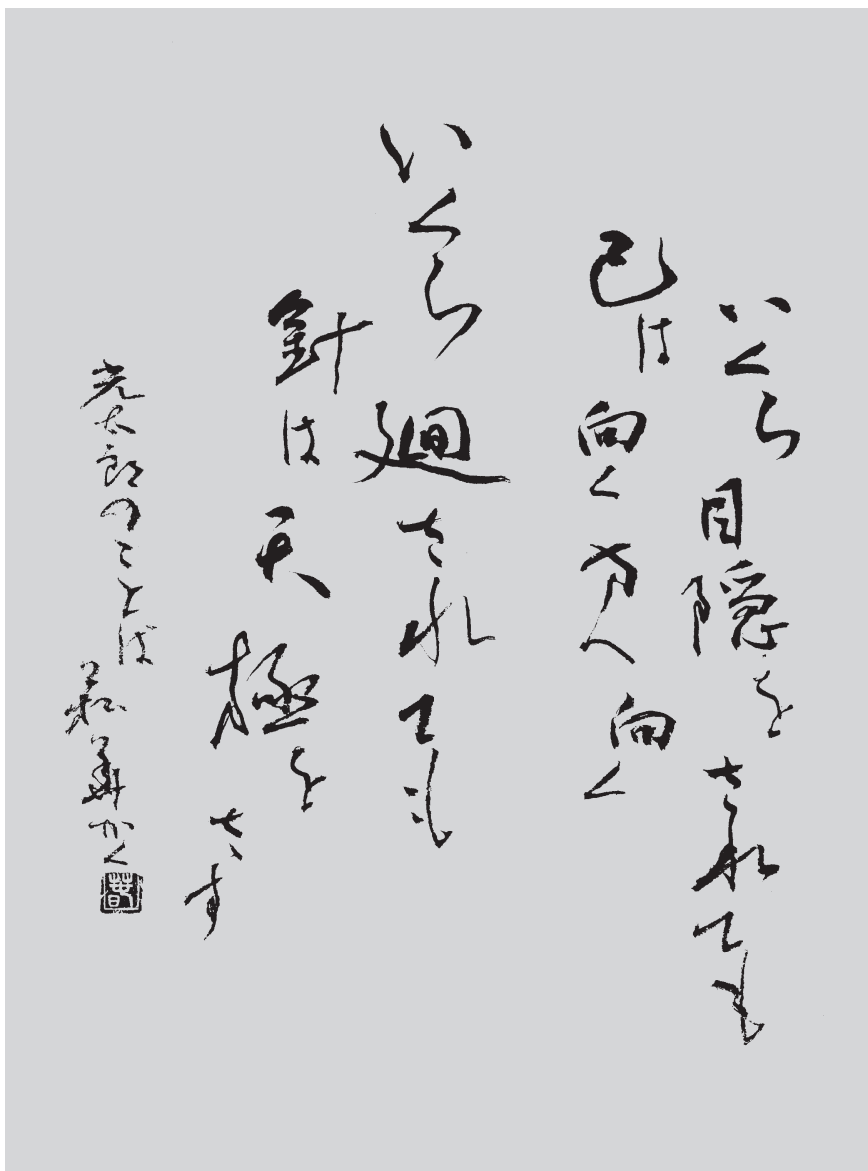 いくら目隠をされても
己は向く方へ向く
いくら廻されても
針は天極をさす
光太郎のことば
華かく